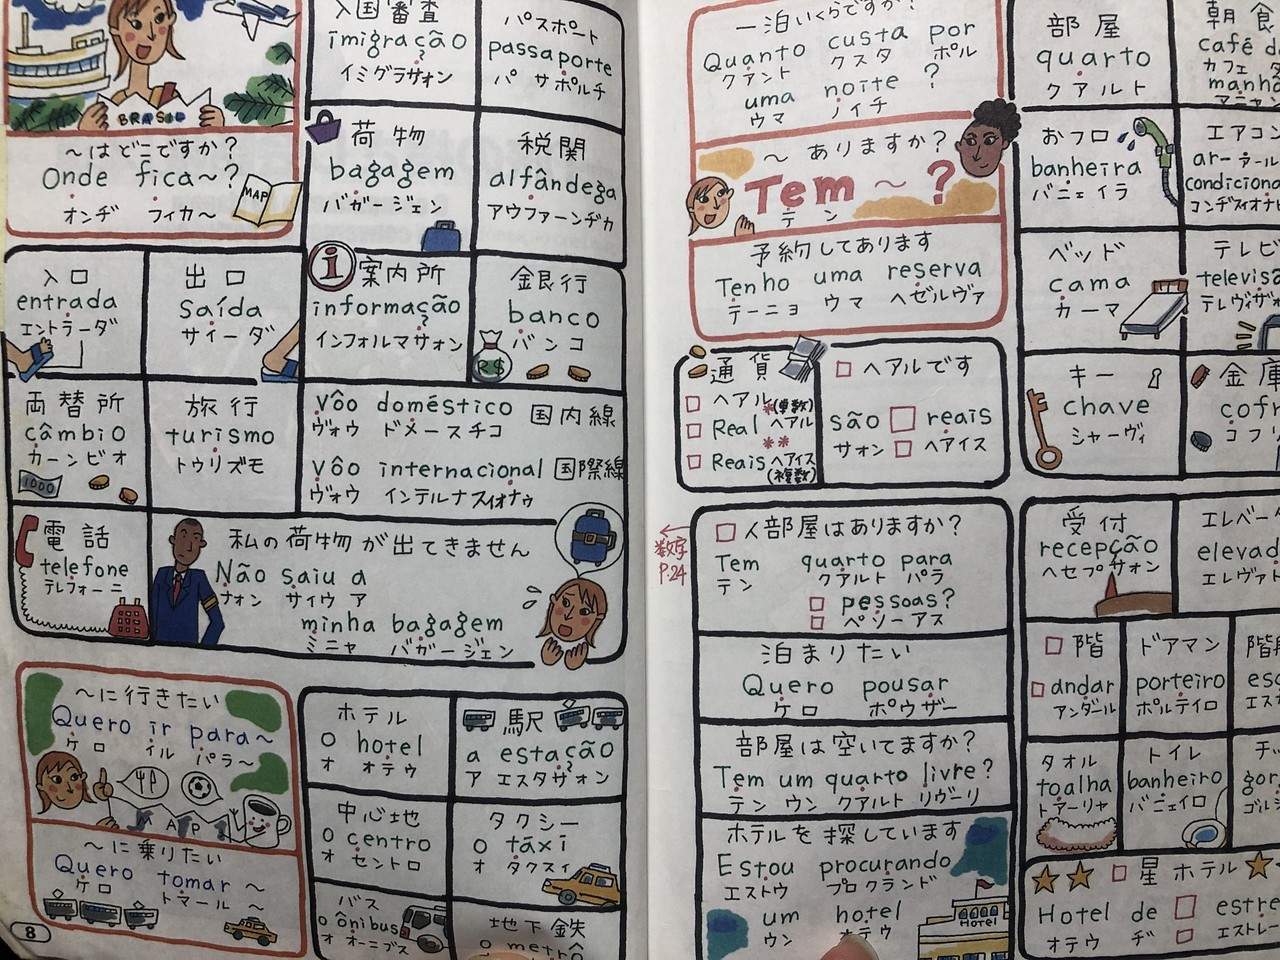 BRASIL
〜はどこですか？
Onde fica〜?
オンヂ フィカ〜
MAP
入国審査
imigração
イミグラサォン
パスポート
passaporte
パサポルチ
荷物
bagagem
バガージェン
税関
alfândega
アウファーンヂカ
入口
entrada
エントラーダ
出口
saída
サイーダ
i 案内所
informação
インフォルマサォン
銀行
banco
バンコ
R$
両替所
câmbio
カーンビオ
1000
旅行
turismo
トゥリズモ
vôo doméstico 国内線
ヴォウ ドメースチコ
vôo internacional 国際線
ヴォウ インテルナスィオナゥ
電話
telefone
テレフォーニ
私の荷物が出てきません
Não saiu a
ナォン サイウ ア
minha bagagem
ミニャ バガージェン
〜に行きたい
Quero ir para〜
ケロ イル パラ〜
MAP
〜に乗りたい
Quero tomar 〜
ケロ トマール 〜
8
ホテル
o hotel
オ オテウ
駅
a estação
ア エスタサォン
中心地
o centro
オ セントロ
タクシー
o táxi
オ タクスィ
バス
o ônibus
オ オーニブス
地下鉄
o metrô
一泊いくらですか？
Quanto custa por
クアント クスタ ポル
uma noite ?
ウマ ノイチ
〜 ありますか？
Tem 〜 ?
テン
予約してあります
Tenho uma reserva
テーニョ ウマ ヘゼルヴァ
通貨
□ ヘアル
*(単数)
□ Real ヘアル
**
□ Reais ヘアイス
(複数)
□ ヘアルです
são □ reais
サォン □ ヘアイス
数字
P.24
□人部屋はありますか？
Tem quarto para
テン クアルト パラ
□ pessoas?
□ ペソーアス
泊まりたい
Quero pousar
ケロ ポウザー
部屋は空いてますか？
Tem um quarto livre?
テン ウン クアルト リヴーリ
ホテルを探しています
Estou procurando
エストウ プロクランド
um hotel
ウン オテウ
HOTEL
部屋
quarto
クアルト
朝食
café d
カフェ
manhã
マニャン
おフロ
banheira
バニェイラ
エアコン
ar-
condiciona
コンヂスィオナ
ベッド
cama
カーマ
テレビ
televisã
テレヴィザォ
キー
chave
シャーヴィ
金庫
cofr
コフ
受付
recepção
ヘセプサォン
エレベー
elevad
エレヴァト
□ 階
□ andar
アンダール
ドアマン
porteiro
ポルテイロ
階
esc
エス
タオル
toalha
トアーリャ
トイレ
banheiro
バニェイロ
チッ
gor
ゴル
□ 星ホテル
Hotel de □ estre
オテウ ヂ □ エストレー